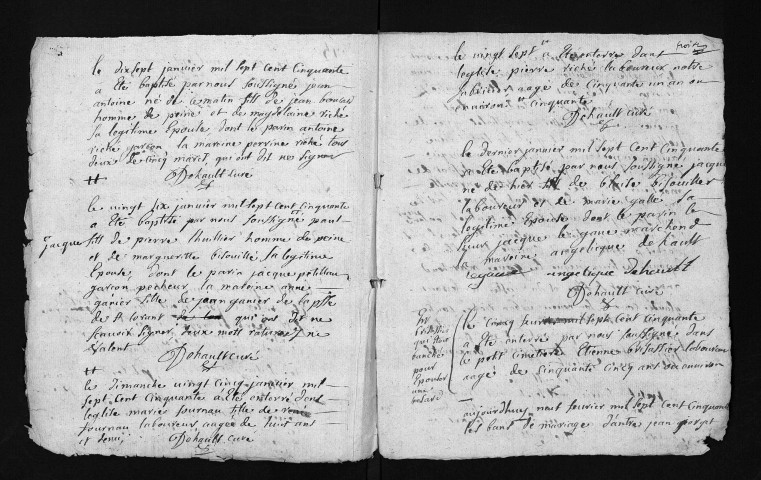 le dix sept janvier mil sept cent cinquante
a été baptisé par nous soussigné jean
antoine né de ce matin fils de jean
homme de peine et de magdelaine riché
sa legitime Epouse dont le parin antoine
riché garçon la marine perrine riché tous
deux de Cinq mart, qui ont dit ne signer
Dehault curé
le vingt six janvier mil sept cent cinquante
a été baptisé par nous soussigné paul
jacque fils de pierre thuillier homme de peine
et de margueritte bisouille sa legitime
Epouse dont le parin jacque potilleau
garçon pecheur la maroine anne
ganier fille de jean ganier de la psse
de St lorant qui ont dit ne
scavoir signer deux mots raturés ne
valent
Dehault curé
le dimanche vingt cinq janvier mil
sept cent cinquante a été enterré dans
l'eglise marie fournau fille de
fournau laboureur aagée de huit ans
et demij Dehault curé
le vingt sept a été enterré dans
l'eglise pierre riché laboureur notre
aagé de cinquante un an ou
environt cinquante
Dehault curé
le dernier janvier mil sept cent cinquante
a été baptisé par nous soussigné jacque
né de hier fils de blaise bisouillier
laboureur et de marie galle sa
legitime Epouse dont le parin le
sieur jacque le gaue marchand
la maroine angelique dehault
legaue angelique dehault
Dehault curé
le cinq sept cent cinquante
a été enterré par nous soussigné dans
le petit cimetiere Etienne brisaltier laboureur
aagé de cinquante cinq ans ou environ
qui
pour
Epouser
une
aujourdhuy neuf fevrier mil sept cent cinquante
les bans de mariage d'entre jean